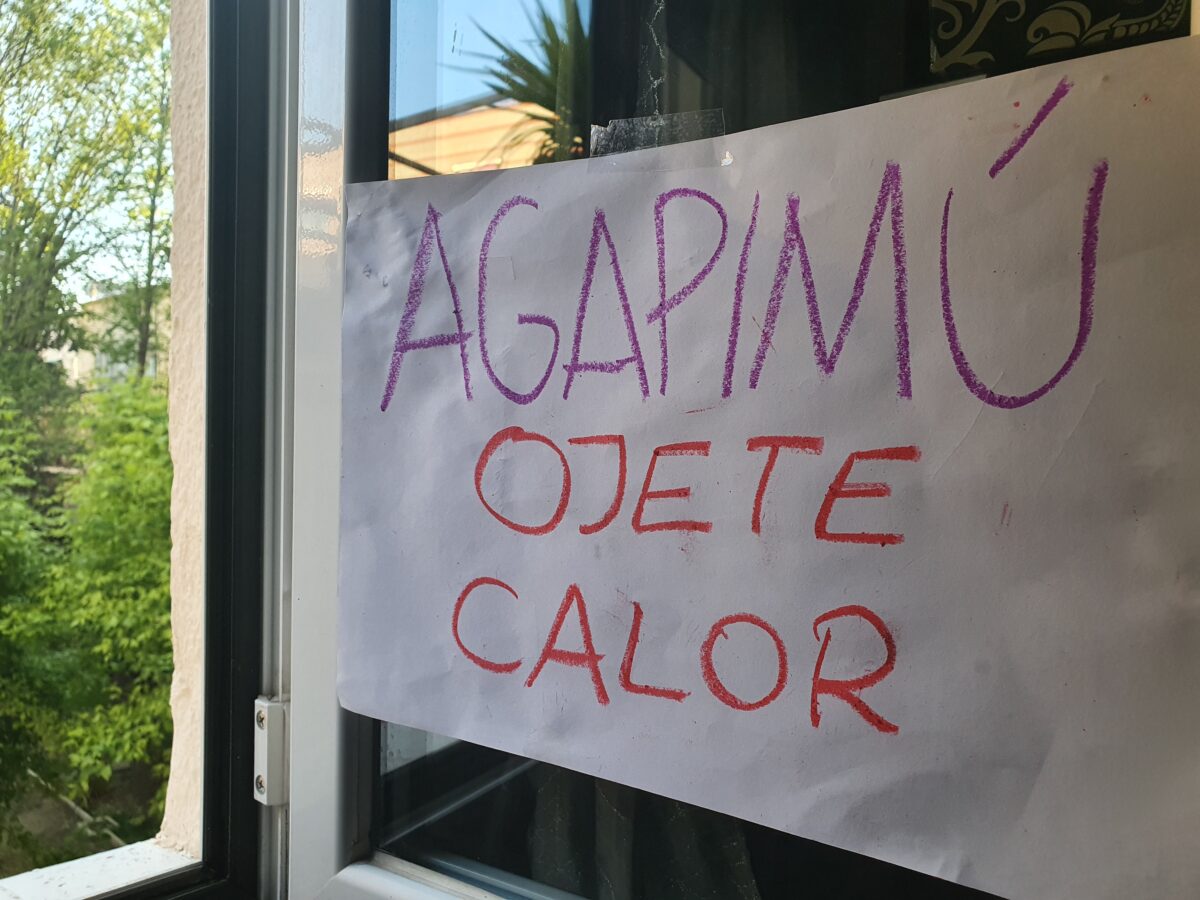 AGAPIMÚ
OJETE
CALOR